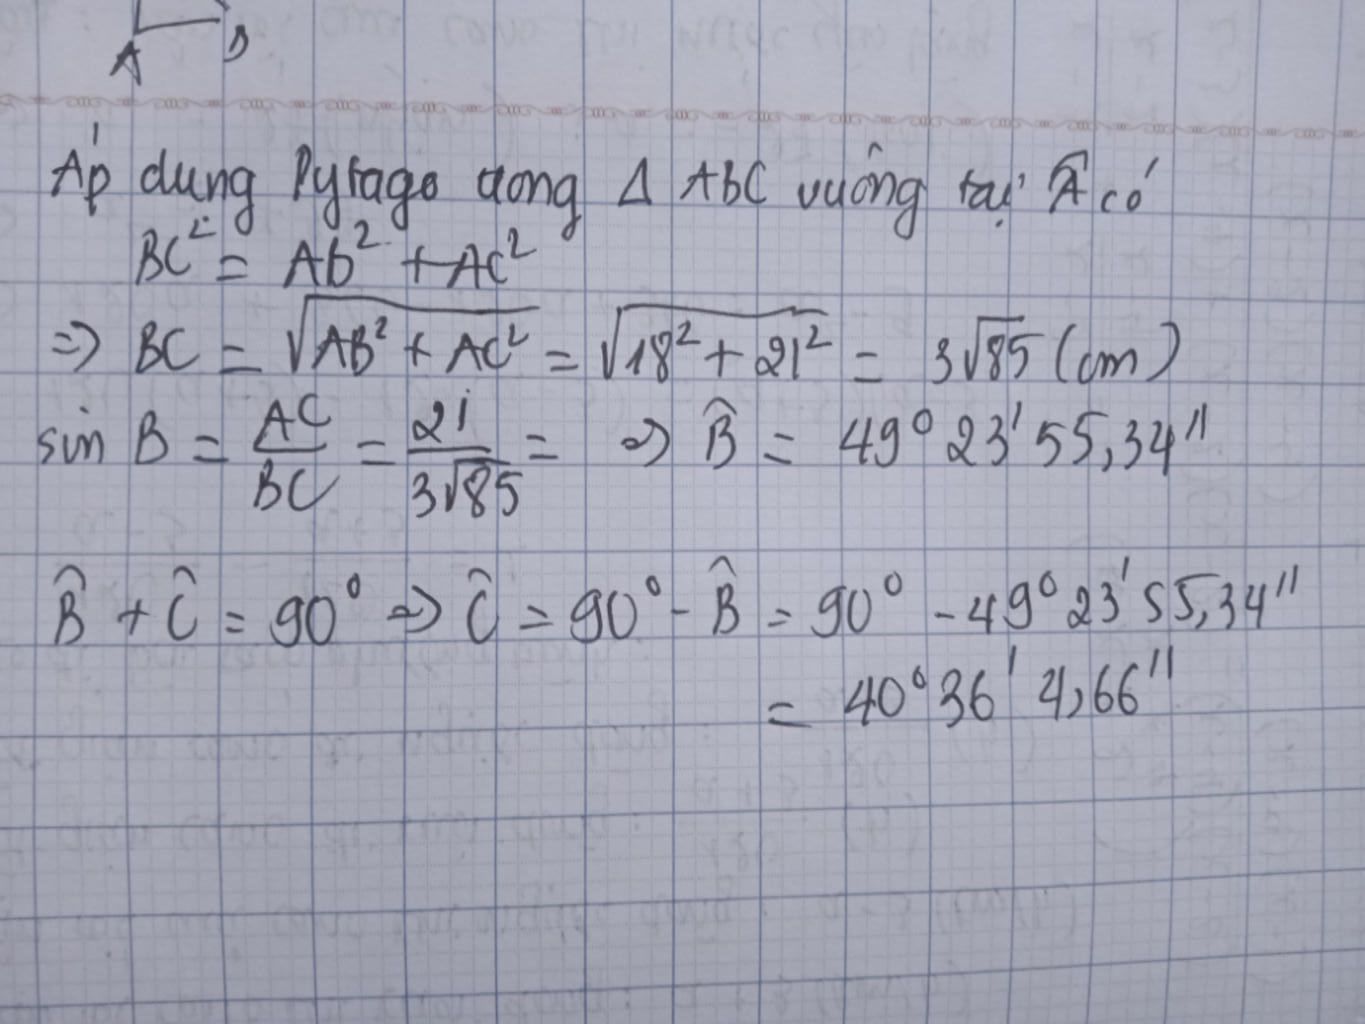 A B
Áp dụng Pytago trong Δ ABC vuông tại Â có
BC² = AB² + AC²
=> BC = √(AB² + AC²) = √(18² + 21²) = 3√85 (cm)
sin B = AC/BC = 21/3√85 = => B̂ = 49° 23' 55,34"
B̂ + Ĉ = 90° => Ĉ = 90° - B̂ = 90° - 49° 23' 55,34"
= 40° 36' 4,66"